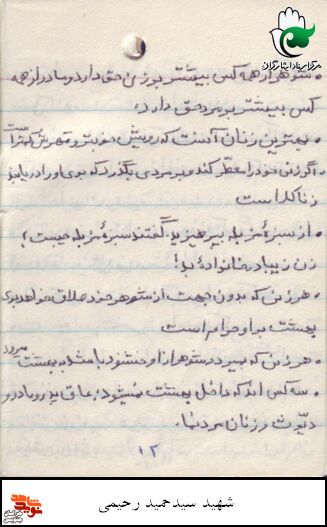 مرکز اسناد ایثارگران
• شوهر از همه کس بیشتر بر زن حق دارد و مادر از همه
کس بیشتر بر مرد حق دارد.
• بهترین زنان آنست که رویش خوبتر و مهرش کمتر است
• اگر زن خود را معطر کند و بر مردی بگذرد که بوی او را دریابند
زناکار است
• از سبزه مزبله بپرهیزید. گفتند سبزه مزبله چیست؟
زن زیبا در خانواده بد!
• هر زن که بدون جهت از شوهر خود طلاق خواهد بوی
بهشت بر او حرام است
• هر زن که بمیرد و شوهر از او خشنود باشد به بهشت میرود
• سه کس اند که داخل بهشت نمیشود: عاق پدر و مادر و
دیوث و زنان مردنما.
۱۲
شهید سیدحمید رحیمی